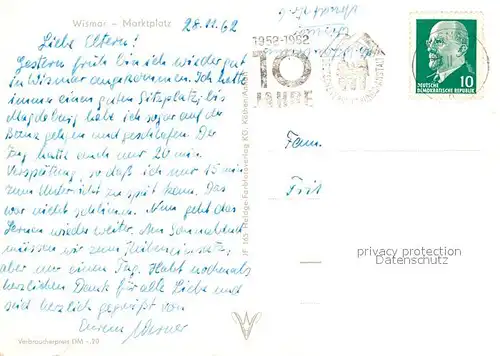 Wismar – Marktplatz
28.11.62
Liebe Eltern!
Gestern früh bin ich wieder gut
in Wismar angekommen. Ich hatte
immer einen guten Sitzplatz, bis
Magdeburg habe ich sogar auf der
Bank gelegen und geschlafen. Der
Zug hatte auch nur 20 min
Verspätung, so daß ich nur 15 min
zum Unterricht zu spät kam. Das
war nicht schlimm. Nun geht das
Lernen wieder weiter. Am Sonnabend
müssen wir zum
aber nur einen Tag. Habt nochmals
herzlichen Dank für alle Liebe und
seid herzlich gegrüßt von
Eurem Werner
Verbraucherpreis DM -.20
JF 165 Heldge-Farbfotoverlag KG. Köthen/Anhalt
1952-1962
10
JAHRE
10
DEUTSCHE
DEMOKRATISCHE REPUBLIK
Fam.
Frit
privacy protection
Datenschutz